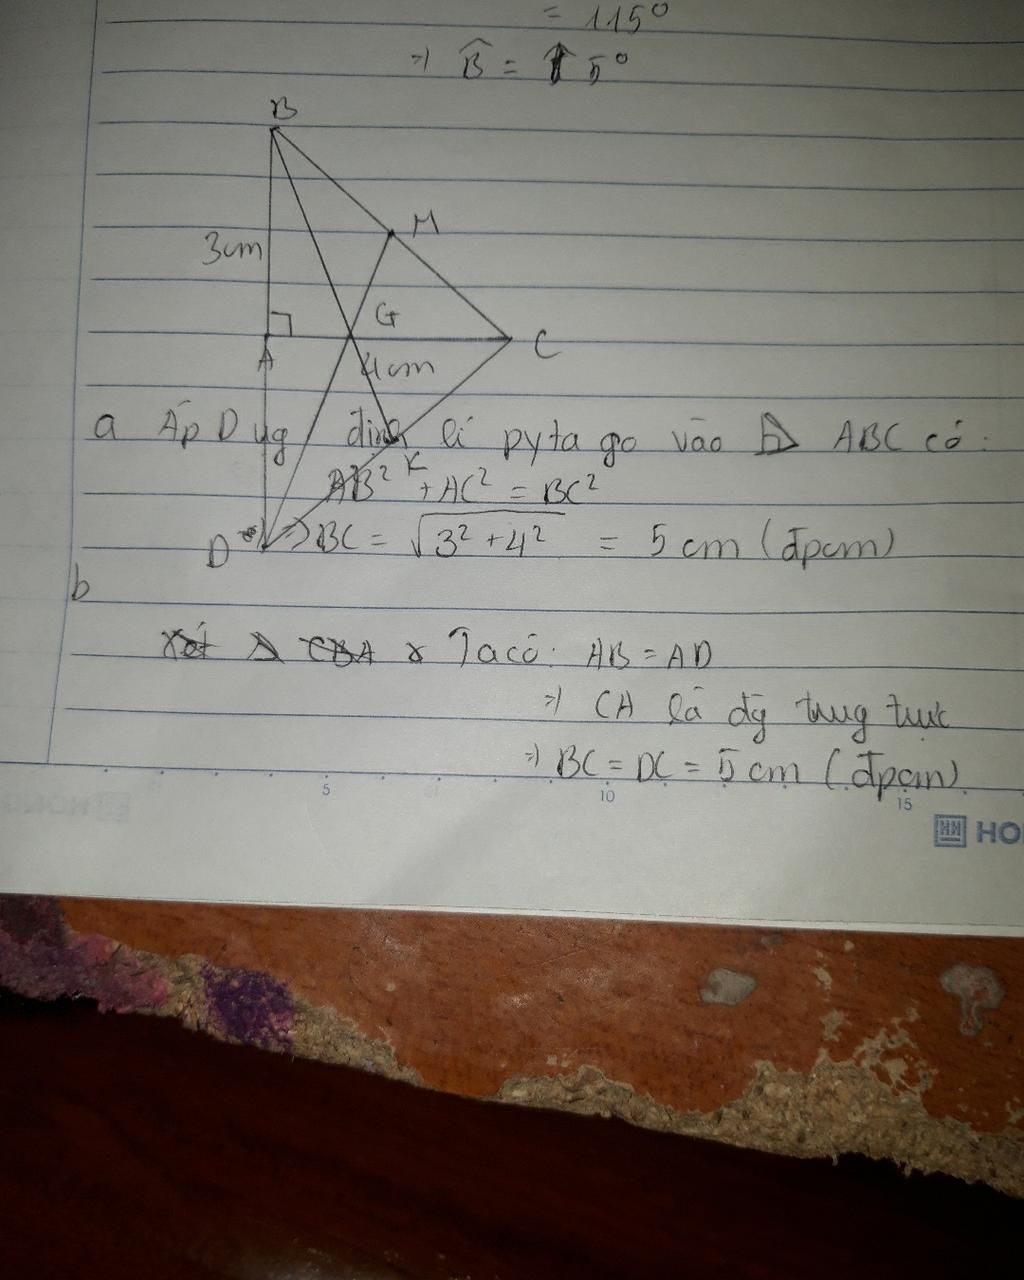 = 115°
=) B̂ = 5°
B
M
3cm
G
A
C
4cm
a Áp Dụg định lí pytago vào △ ABC có:
K
AB² + AC² = BC²
D
=) BC = √3² + 4² = 5 cm (đpcm)
b
Ta có: AB = AD
=) CA là đg trug trực
=) BC = DC = 5 cm (đpcm)
5
10
15
HO
HONG